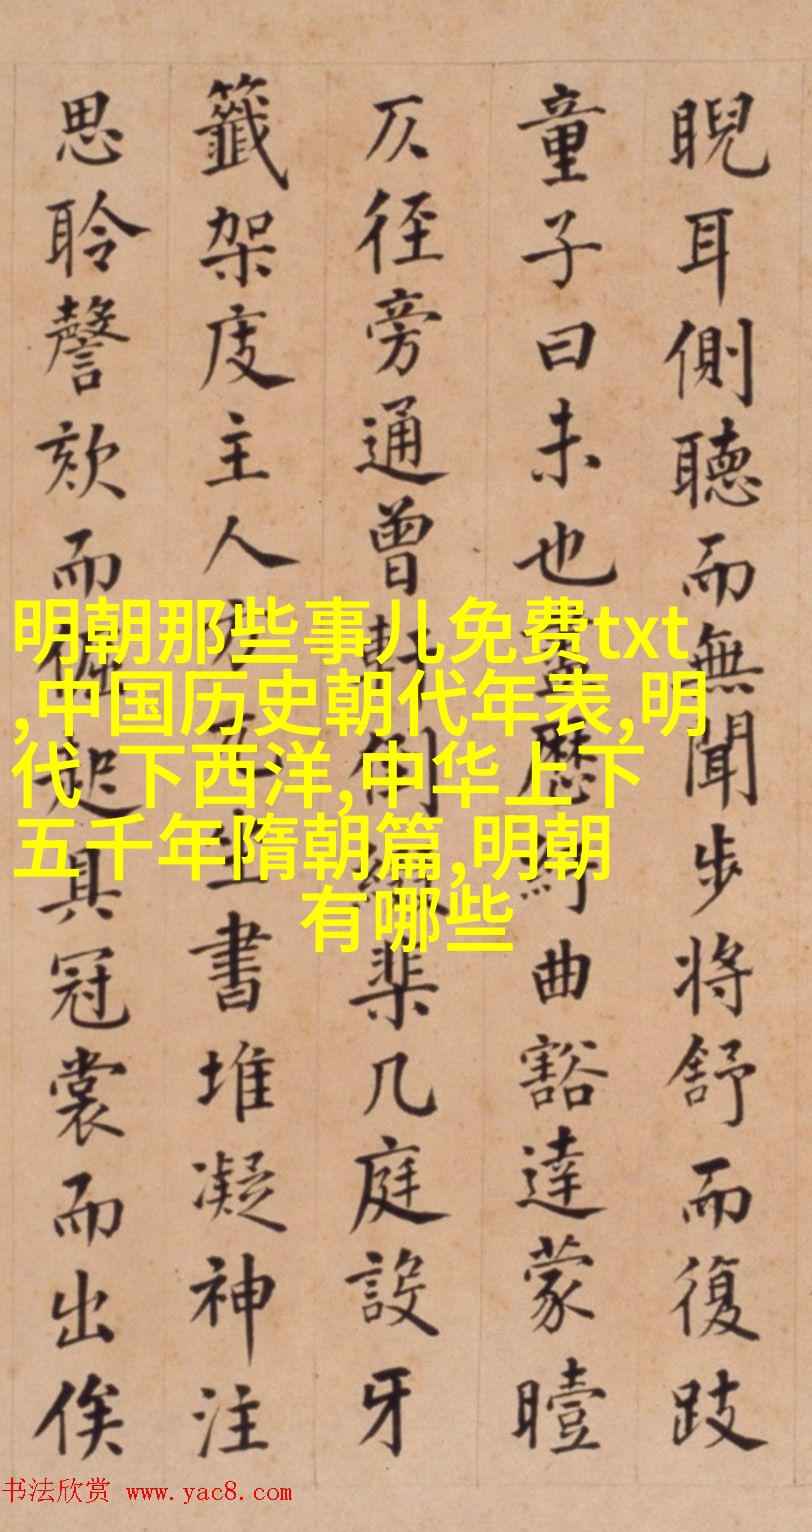 睨耳側聽而無聞步將舒而復跂
童子曰未也歷曲豁達蒙曀
仄徑旁通曾軒側棐几庭設牙
籤架庋主人坐書堆凝神注
思聆謦欬而倔起具冠裳而出俟
明朝那些事儿免费txt
,中国历史朝代年表,明
代 下西洋,中华上下
五千年隋朝篇,明朝
有哪些
书法欣赏 www.yac8.com